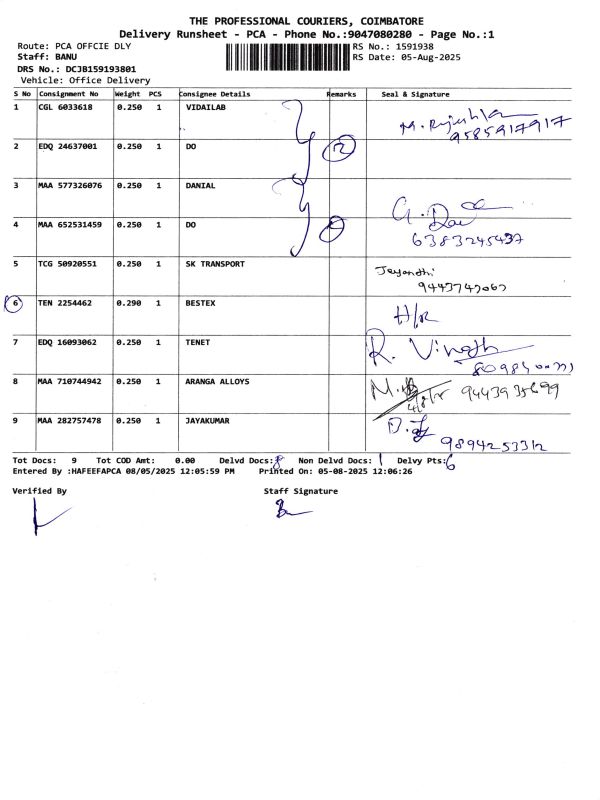 THE PROFESSIONAL COURIERS, COIMBATORE
Delivery Runsheet - PCA - Phone No.:9047080280 - Page No.:1
Route: PCA OFFCIE DLY RS No.: 1591938
Staff: BANU RS Date: 05-Aug-2025
DRS No.: DCJB159193801
Vehicle: Office Delivery
S No Consignment No Weight PCS Consignee Details Remarks Seal & Signature
1 CGL 6033618 0.250 1 VIDAILAB
9585917917
2 EDQ 24637001 0.250 1 DO
3 MAA 577326076 0.250 1 DANIAL
4 MAA 652531459 0.250 1 DO
6383245437
5 TCG 50920551 0.250 1 SK TRANSPORT Jeyandhi
6 TEN 2254462 0.290 1 BESTEX H/R
7 EDQ 16093062 0.250 1 TENET R. Vinoth
8 MAA 710744942 0.250 1 ARANGA ALLOYS
9 MAA 282757478 0.250 1 JAYAKUMAR
Tot Docs: 9 Tot COD Amt: 0.00 Delvd Docs: 8 Non Delvd Docs: 1 Delvy Pts: 6
Entered By :HAFEEFAPCA 08/05/2025 12:05:59 PM Printed On: 05-08-2025 12:06:26
Verified By Staff Signature